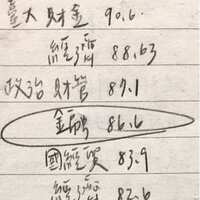 臺大 財金 90.6
經濟 88.63
政治 財管 87.1
金融 86.6
國經貿 83.9
經濟 82.6